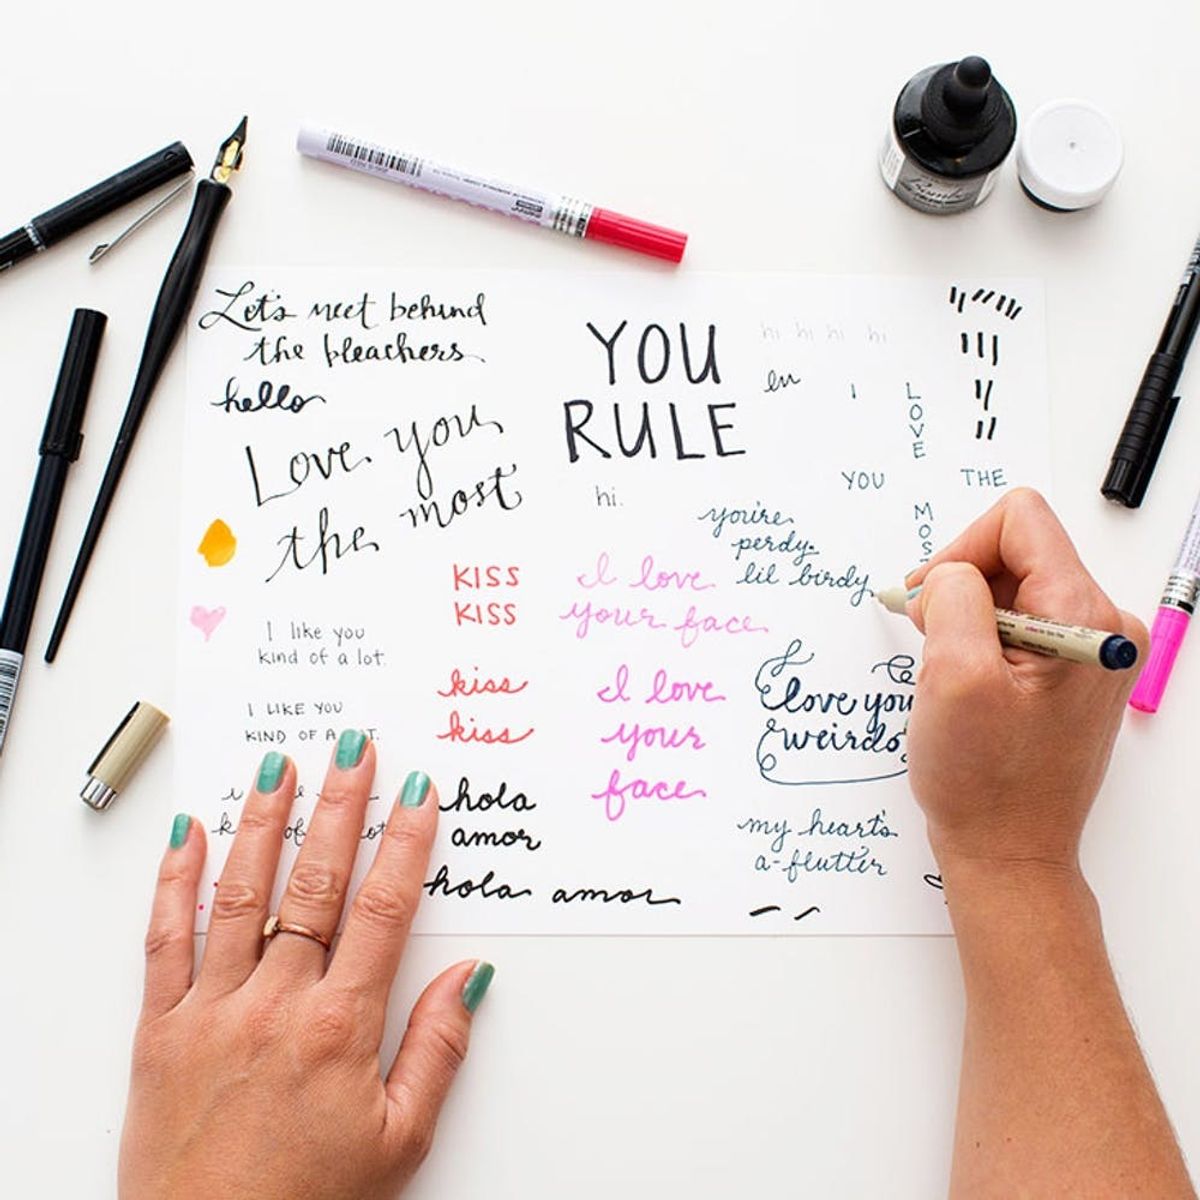 Let's meet behind
the bleachers
hello
Love you
the most
YOU
RULE
hi hi hi hi
I
LOVE
YOU
THE
hi.
you're
perdy.
lil birdy
KISS
KISS
I love
your face
I like you
kind of a lot.
kiss
kiss
I love
your
face
love you
weirdo
I LIKE YOU
KIND OF A
hola
amor
hola amor
my heart's
a-flutter